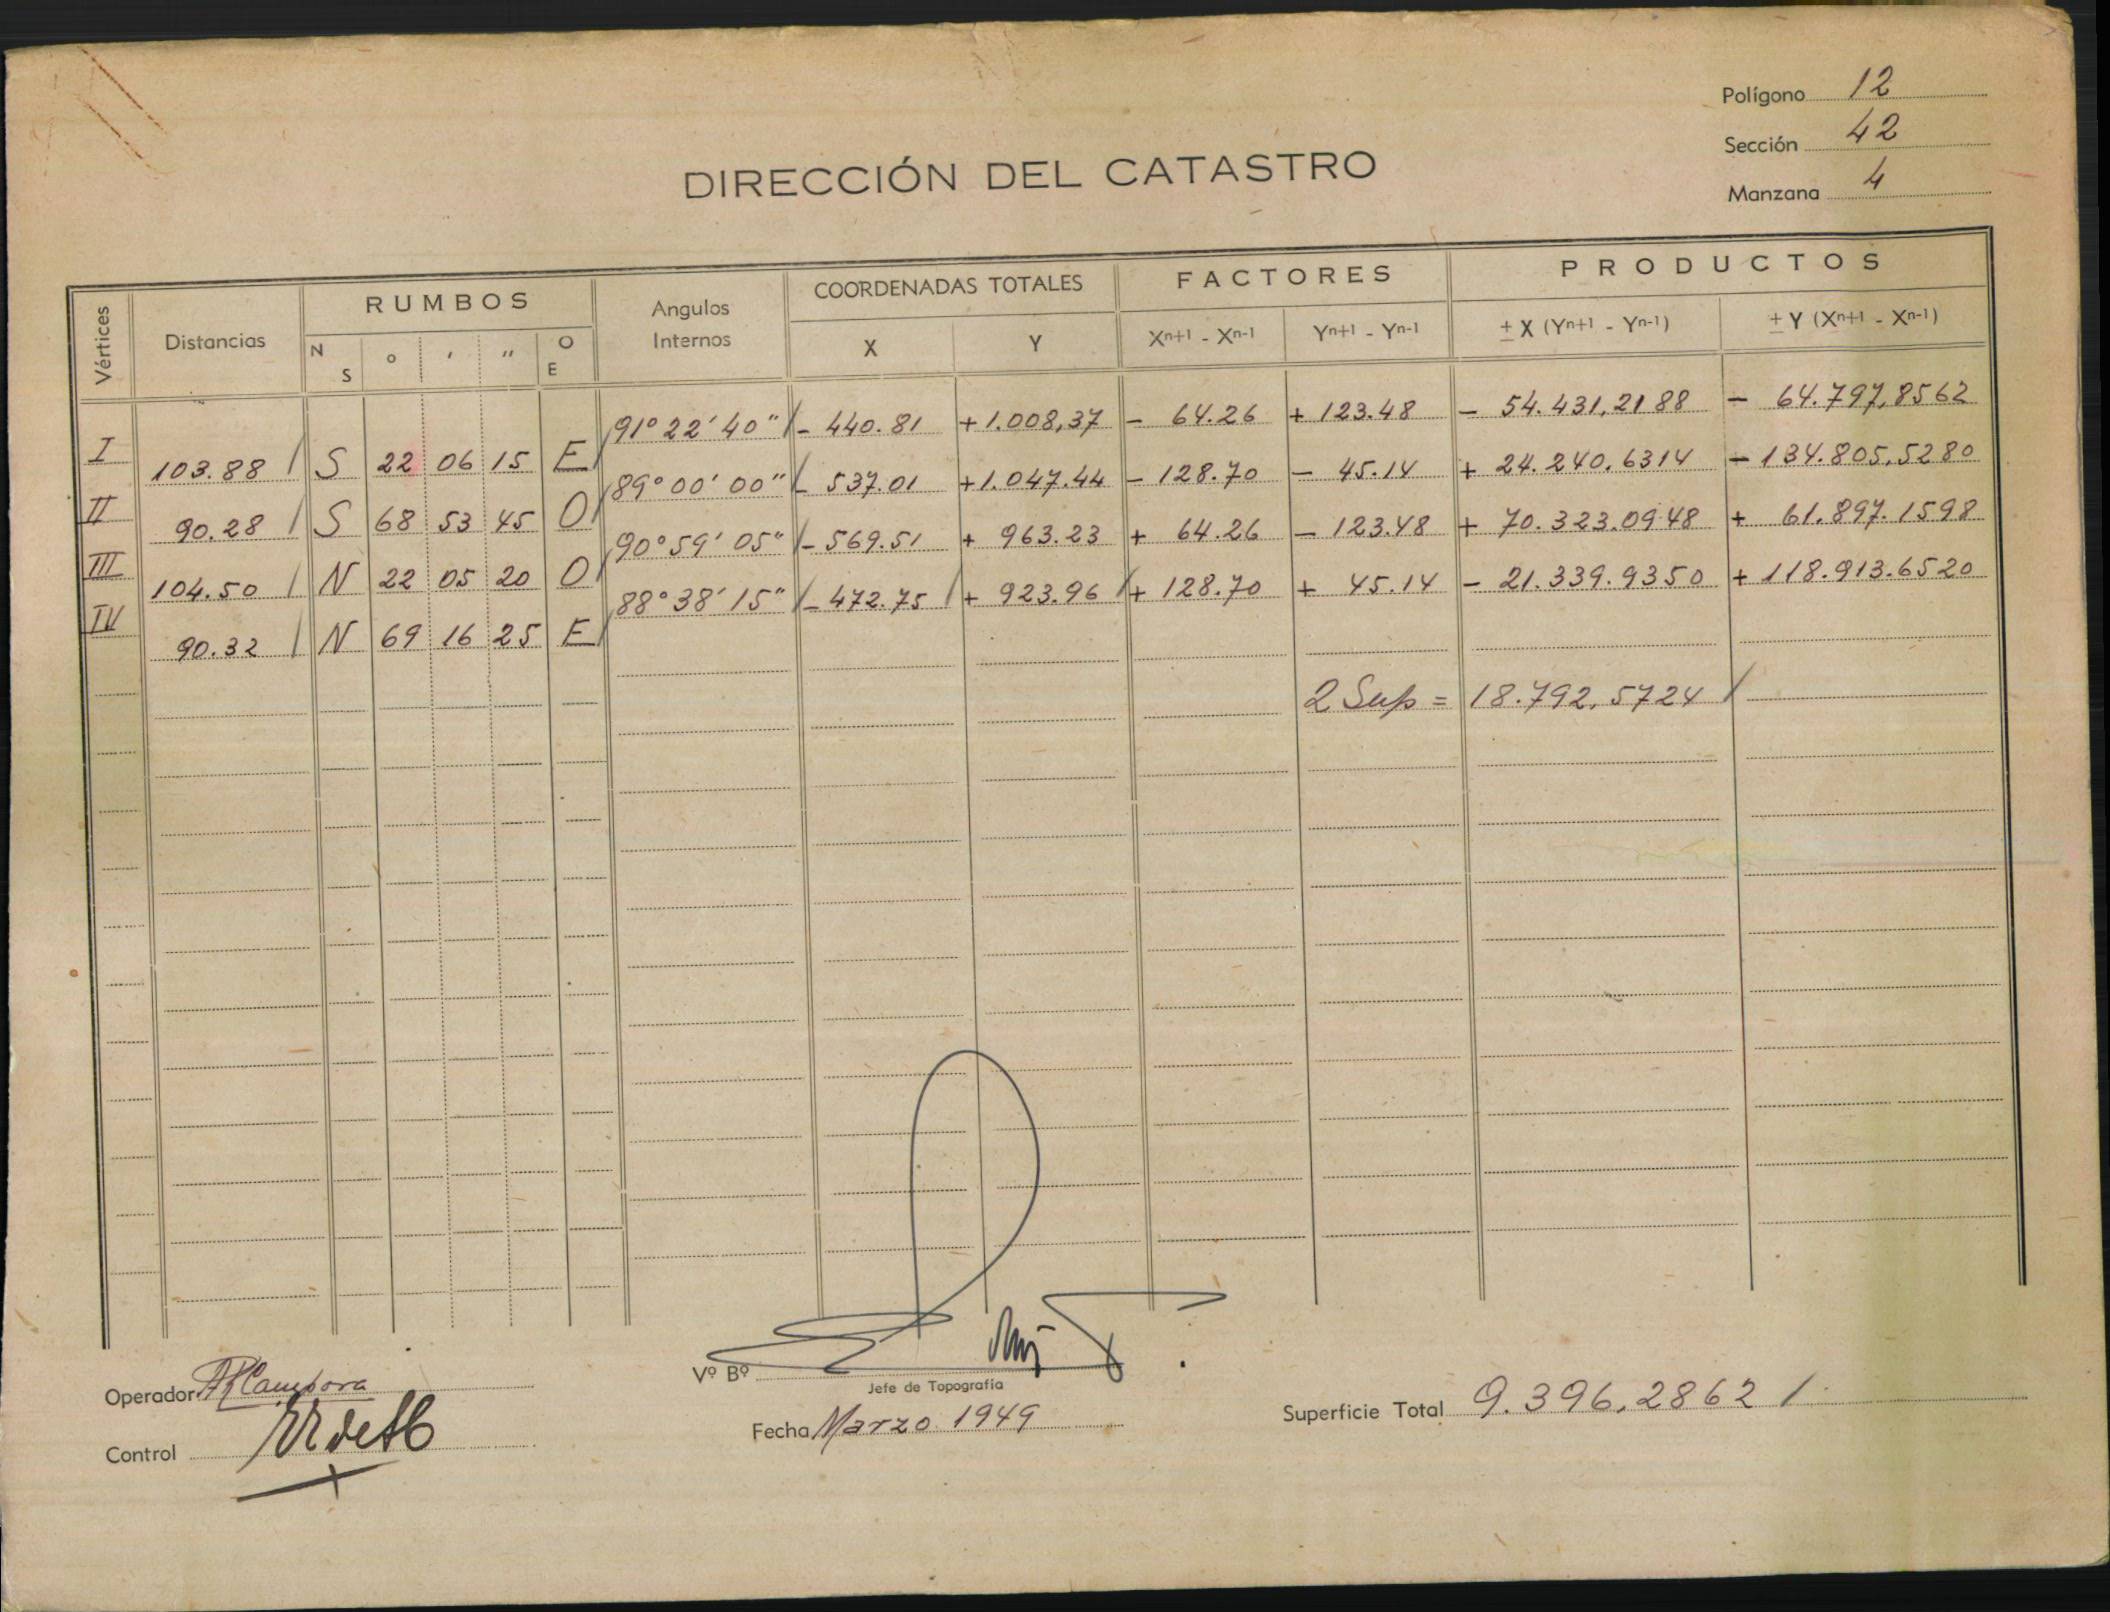 Polígono 12
Sección 42
Manzana 4
DIRECCIÓN DEL CATASTRO
Vértices Distancias RUMBOS Angulos Internos COORDENADAS TOTALES FACTORES PRODUCTOS
N S ° ' " O E X Y Xn+1 - Xn-1 Yn+1 - Yn-1 ± X (Yn+1 - Yn-1) ± Y (Xn+1 - Xn-1)
91° 22' 40" / - 440.81 +1.008,37 - 64.26 + 123.48 - 54.431,2188 - 64.797,8562
I 103.88 / S 22 06 15 E /
89° 00' 00" / - 537.01 +1.047.44 - 128.70 - 45.14 + 24.240,6314 - 134.805,5280
II 90.28 / S 68 53 45 O /
90° 59' 05" / - 569.51 + 963.23 + 64.26 - 123.48 + 70.323.0948 + 61.897.1598
III 104.50 / N 22 05 20 O /
88° 38' 15" / - 472.75 / + 923.96 / + 128.70 + 45.14 - 21.339.9350 + 118.913.6520
IV 90.32 / N 69 16 25 E /
2 Sup = 18.792,5724 /
Operador
Vº Bº
Jefe de Topografía
Control
Fecha Marzo 1949
Superficie Total 9.396,2862 /